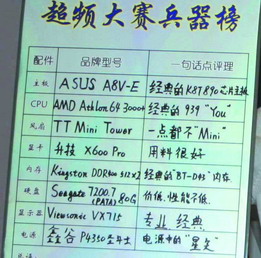 超频大赛兵器榜
配件 品牌型号 一句话点评理
主板 ASUS A8V-E 经典的K8T890芯片主板
CPU AMD Athlon64 3000+ 经典的939 "You"
风扇 TT Mini Tower 一点都不"Mini"
显卡 X600 Pro 用料很好
内存 Kingston DDR400 512x2 经典的"BT-D43"内存
硬盘 Seagate 7200.7 (PATA) 80G 价低.性能不低.
显示器 Viewsonic VX715 专业 经典
电源 鑫谷 P4350 电源中的"星矢"